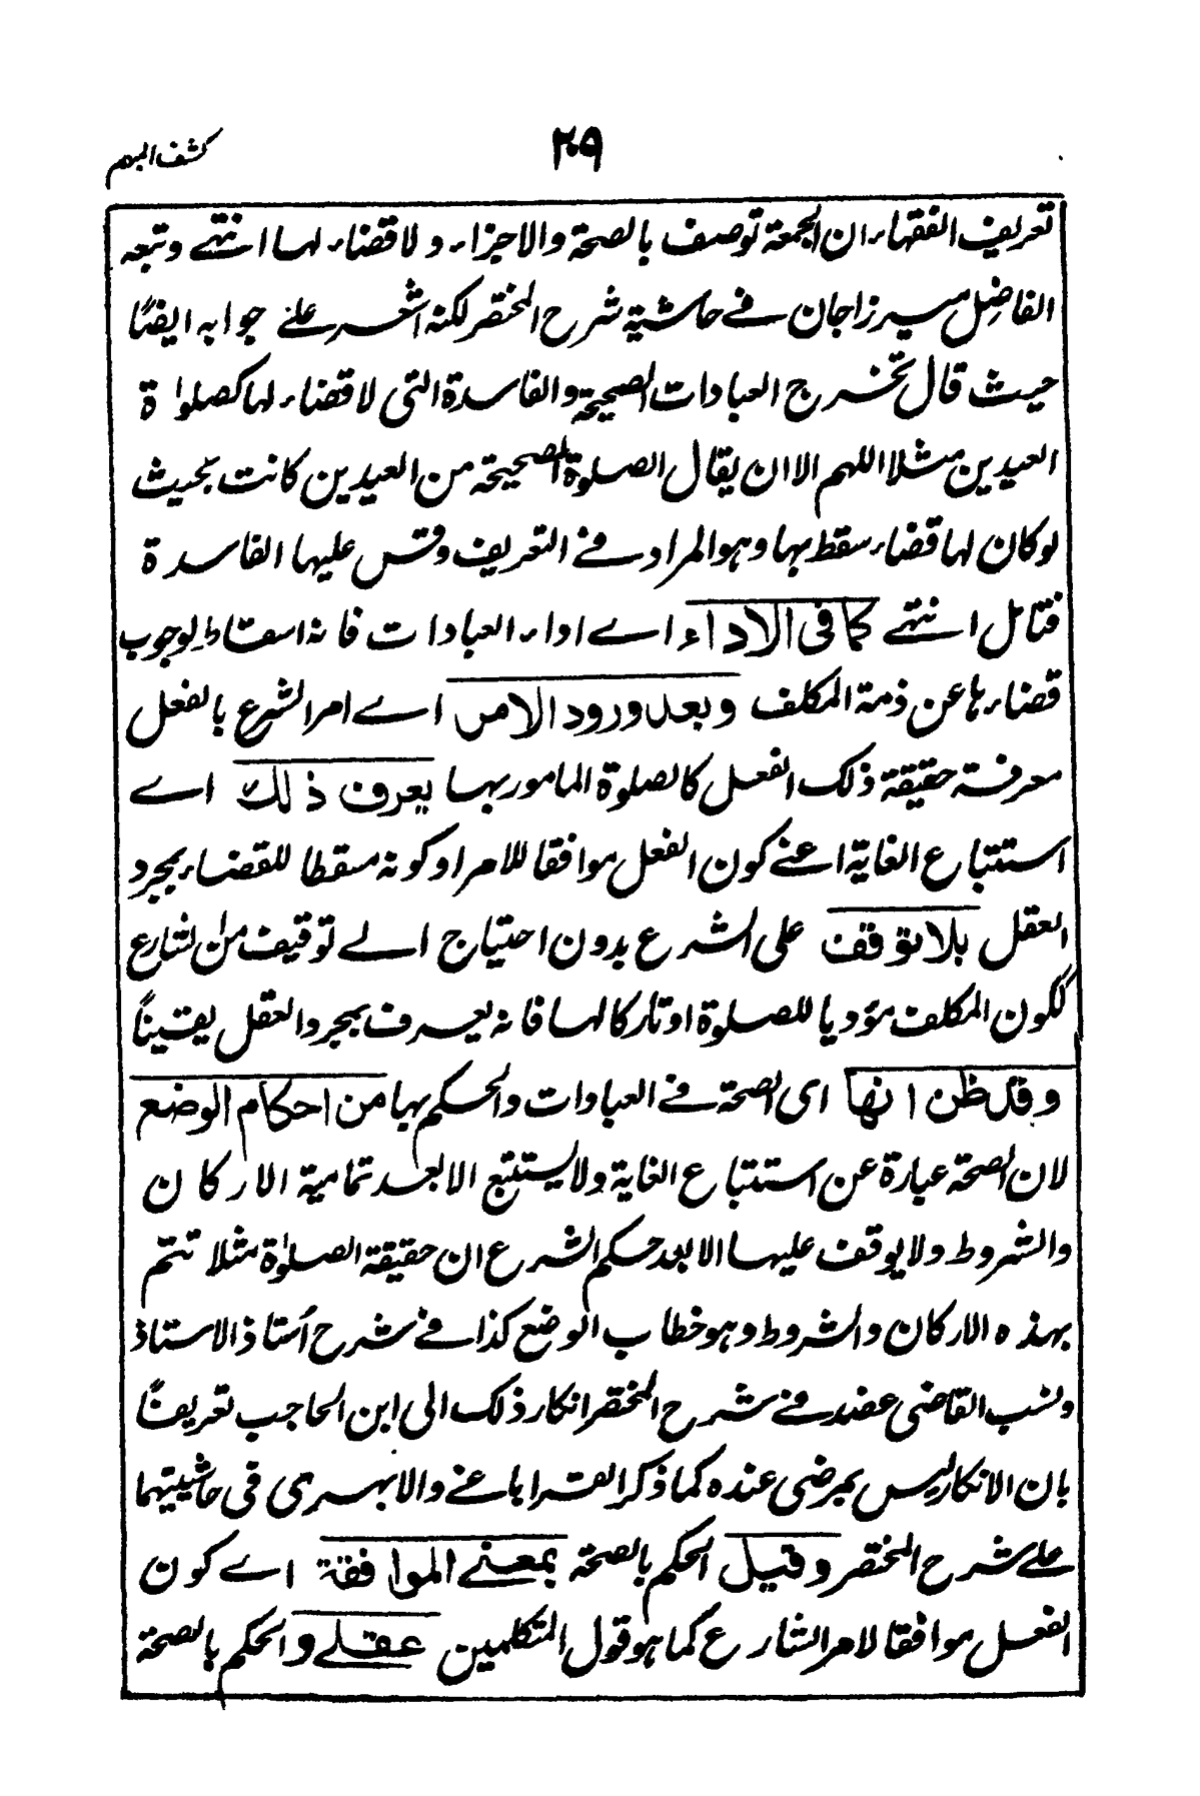 كشف المبهم
٢٠٩
تعريف الفقهاء ان الجمعة توصف بالصحة والاجزاء ولا قضاء لها انتهے وتبعه
الفاضل ميرزاجان فے حاشية شرح المختصر لكنه اشعر علے جوابه ايضًا
حيث قال تخرج العبادات الصحيحة والفاسدة التى لا قضاء لها كصلوٰة
العيدين مثلا اللهم الا ان يقال الصلوة الصحيحة من العيدين كانت بحيث
لو كان لها قضاء سقط بها وهو المراد فے التعريف وقس عليها الفاسدة
فتامل انتهے كما فى الاداء اے اداء العبادات فانه اسقاط لوجوب
قضاءها عن ذمة المكلف وبعد ورود الامر اے امر الشرع بالفعل
معرفة حقيقة ذلك الفعل كالصلوة المامور بها يعرف ذلك اے
استتباع الغاية اعنے كون الفعل موافقا للامر او كونه مسقطا للقضاء بمجرد
العقل بلا توقف على الشرع بدون احتياج الے توقيف من الشارع
ككون المكلف مؤديا للصلوة او تاركا لها فانه يعرف بمجرد العقل يقينًا
وقد ظن انها اى الصحة فے العبادات والحكم بها من احكام الوضع
لان الصحة عبارة عن استتباع الغاية ولا يستتبع الا بعد تمامية الاركان
والشروط ولا يوقف عليها الا بعد حكم الشرع ان حقيقة الصلوٰة مثلا تتم
بهذه الاركان والشروط وهو خطاب الوضع كذا فے شرح أستاذ الاستاذ
ونسب القاضى عضد فے شرح المختصر انكار ذلك الى ابن الحاجب تعريضًا
بان الانكار ليس بمرضى عنده كما ذكر القراباغے والابهرى فى حاشيتيهما
علے شرح المختصر وقيل الحكم بالصحة بمعنے الموافقة اے كون
الفعل موافقا لامر الشارع كما هو قول المتكلمين عقلے والحكم بالصحة